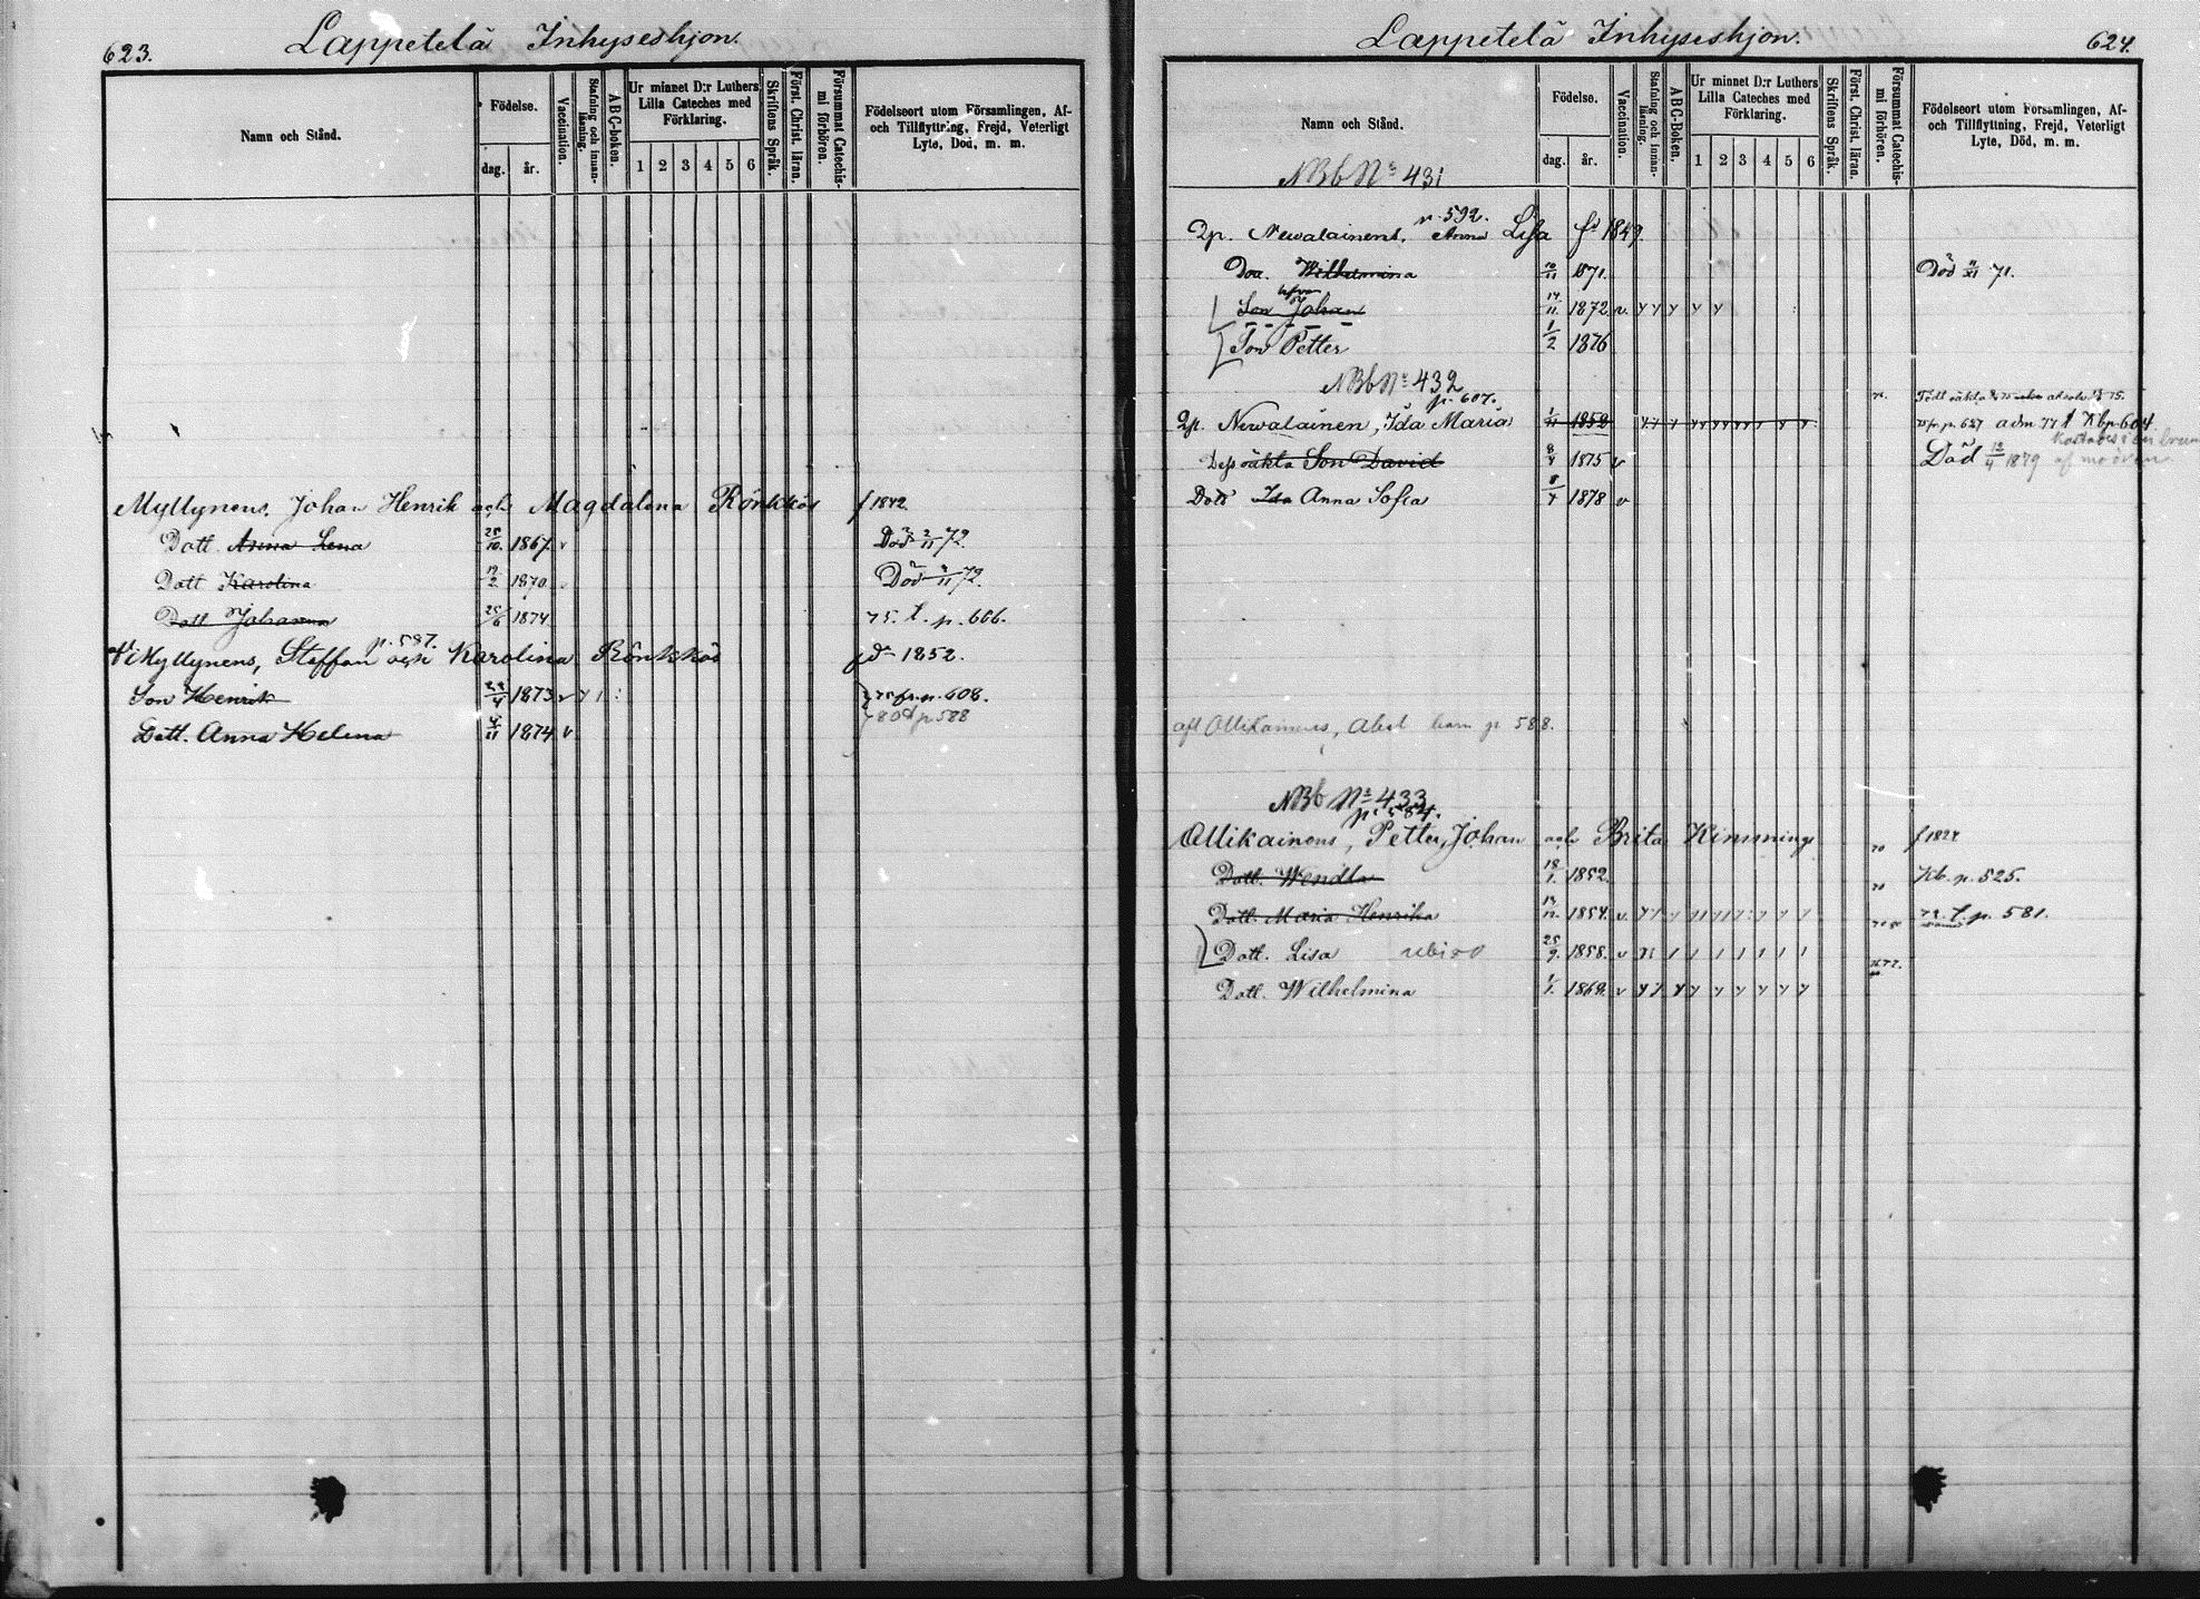 623.
Lappetelä Inhyseshjon.
Namn och Stånd.
Födelse.
dag. år.
Vaccination.
Stafning och innan-läsning.
A B C-boken.
Ur minnet D:r Luthers
Lilla Cateches med
Förklaring.
1 2 3 4 5 6
Skriftens Språk.
Först. Christ. läran.
Försummat Catechis-mi förhören.
Födelseort utom Församlingen, Af-
och Tillflyttning, Frejd, Veterligt
Lyte, Död, m. m.
Myllynens, Johan Henrik och Magdalena Rönkkös f 1842.
Dott. Anna Lena 25/10. 1867. v Död 2/11 72.
Dott Karolina 19/2. 1870. Död 2/11 72.
Dott Johanna 25/6 1874 75. t. p. 666.
p. 597.
Myllynens, Staffan och Karolina Rönkkös fd 1852.
Son Henrik 24/4 1873 v 75 fr. p. 608.
80 t p 588
Dott. Anna Helena 4/11 1874 v
Lappetelä Inhyseshjon.
624.
Namn och Stånd.
Födelse.
dag. år.
Vaccination.
Stafning och innan-läsning.
A B C-Boken.
Ur minnet D:r Luthers
Lilla Cateches med
Förklaring.
1 2 3 4 5 6
Skriftens Språk.
Först. Christ. läran.
Försummat Catechis-mi förhören.
Födelseort utom Församlingen, Af-
och Tillflyttning, Frejd, Veterligt
Lyte, Död, m. m.
NBb No 431
p. 592.
Qp. Newalainens, Anna Lisa fd 1849.
Dou. Wilhelmina 1871. Död 71.
Son Johan 14/11 1872 v.
Son Petter 1/2 1876
NBb No 432
p. 607.
Qp. Newalainen, Ida Maria 1/11 1852 fr p. 627 adm 77 t Kbp 604
Dess oäkta Son David 8/4 1875 v Död 12/4 1879 af modren
Dott Ida Anna Sofia 8/7 1878 v
Ollikainens, Abel barn p 588.
NBb No 433
p. 584.
Ollikainens, Petter Johan och Brita Kimmings 70 f 1824
Dott. Wendla 18/1. 1852. 70 Kb. p. 525.
Dott. Maria Henrika 1854. v. t. p. 581.
Dott. Lisa 25/9. 1858. v
Dott. Wilhelmina 1/1. 1869. v